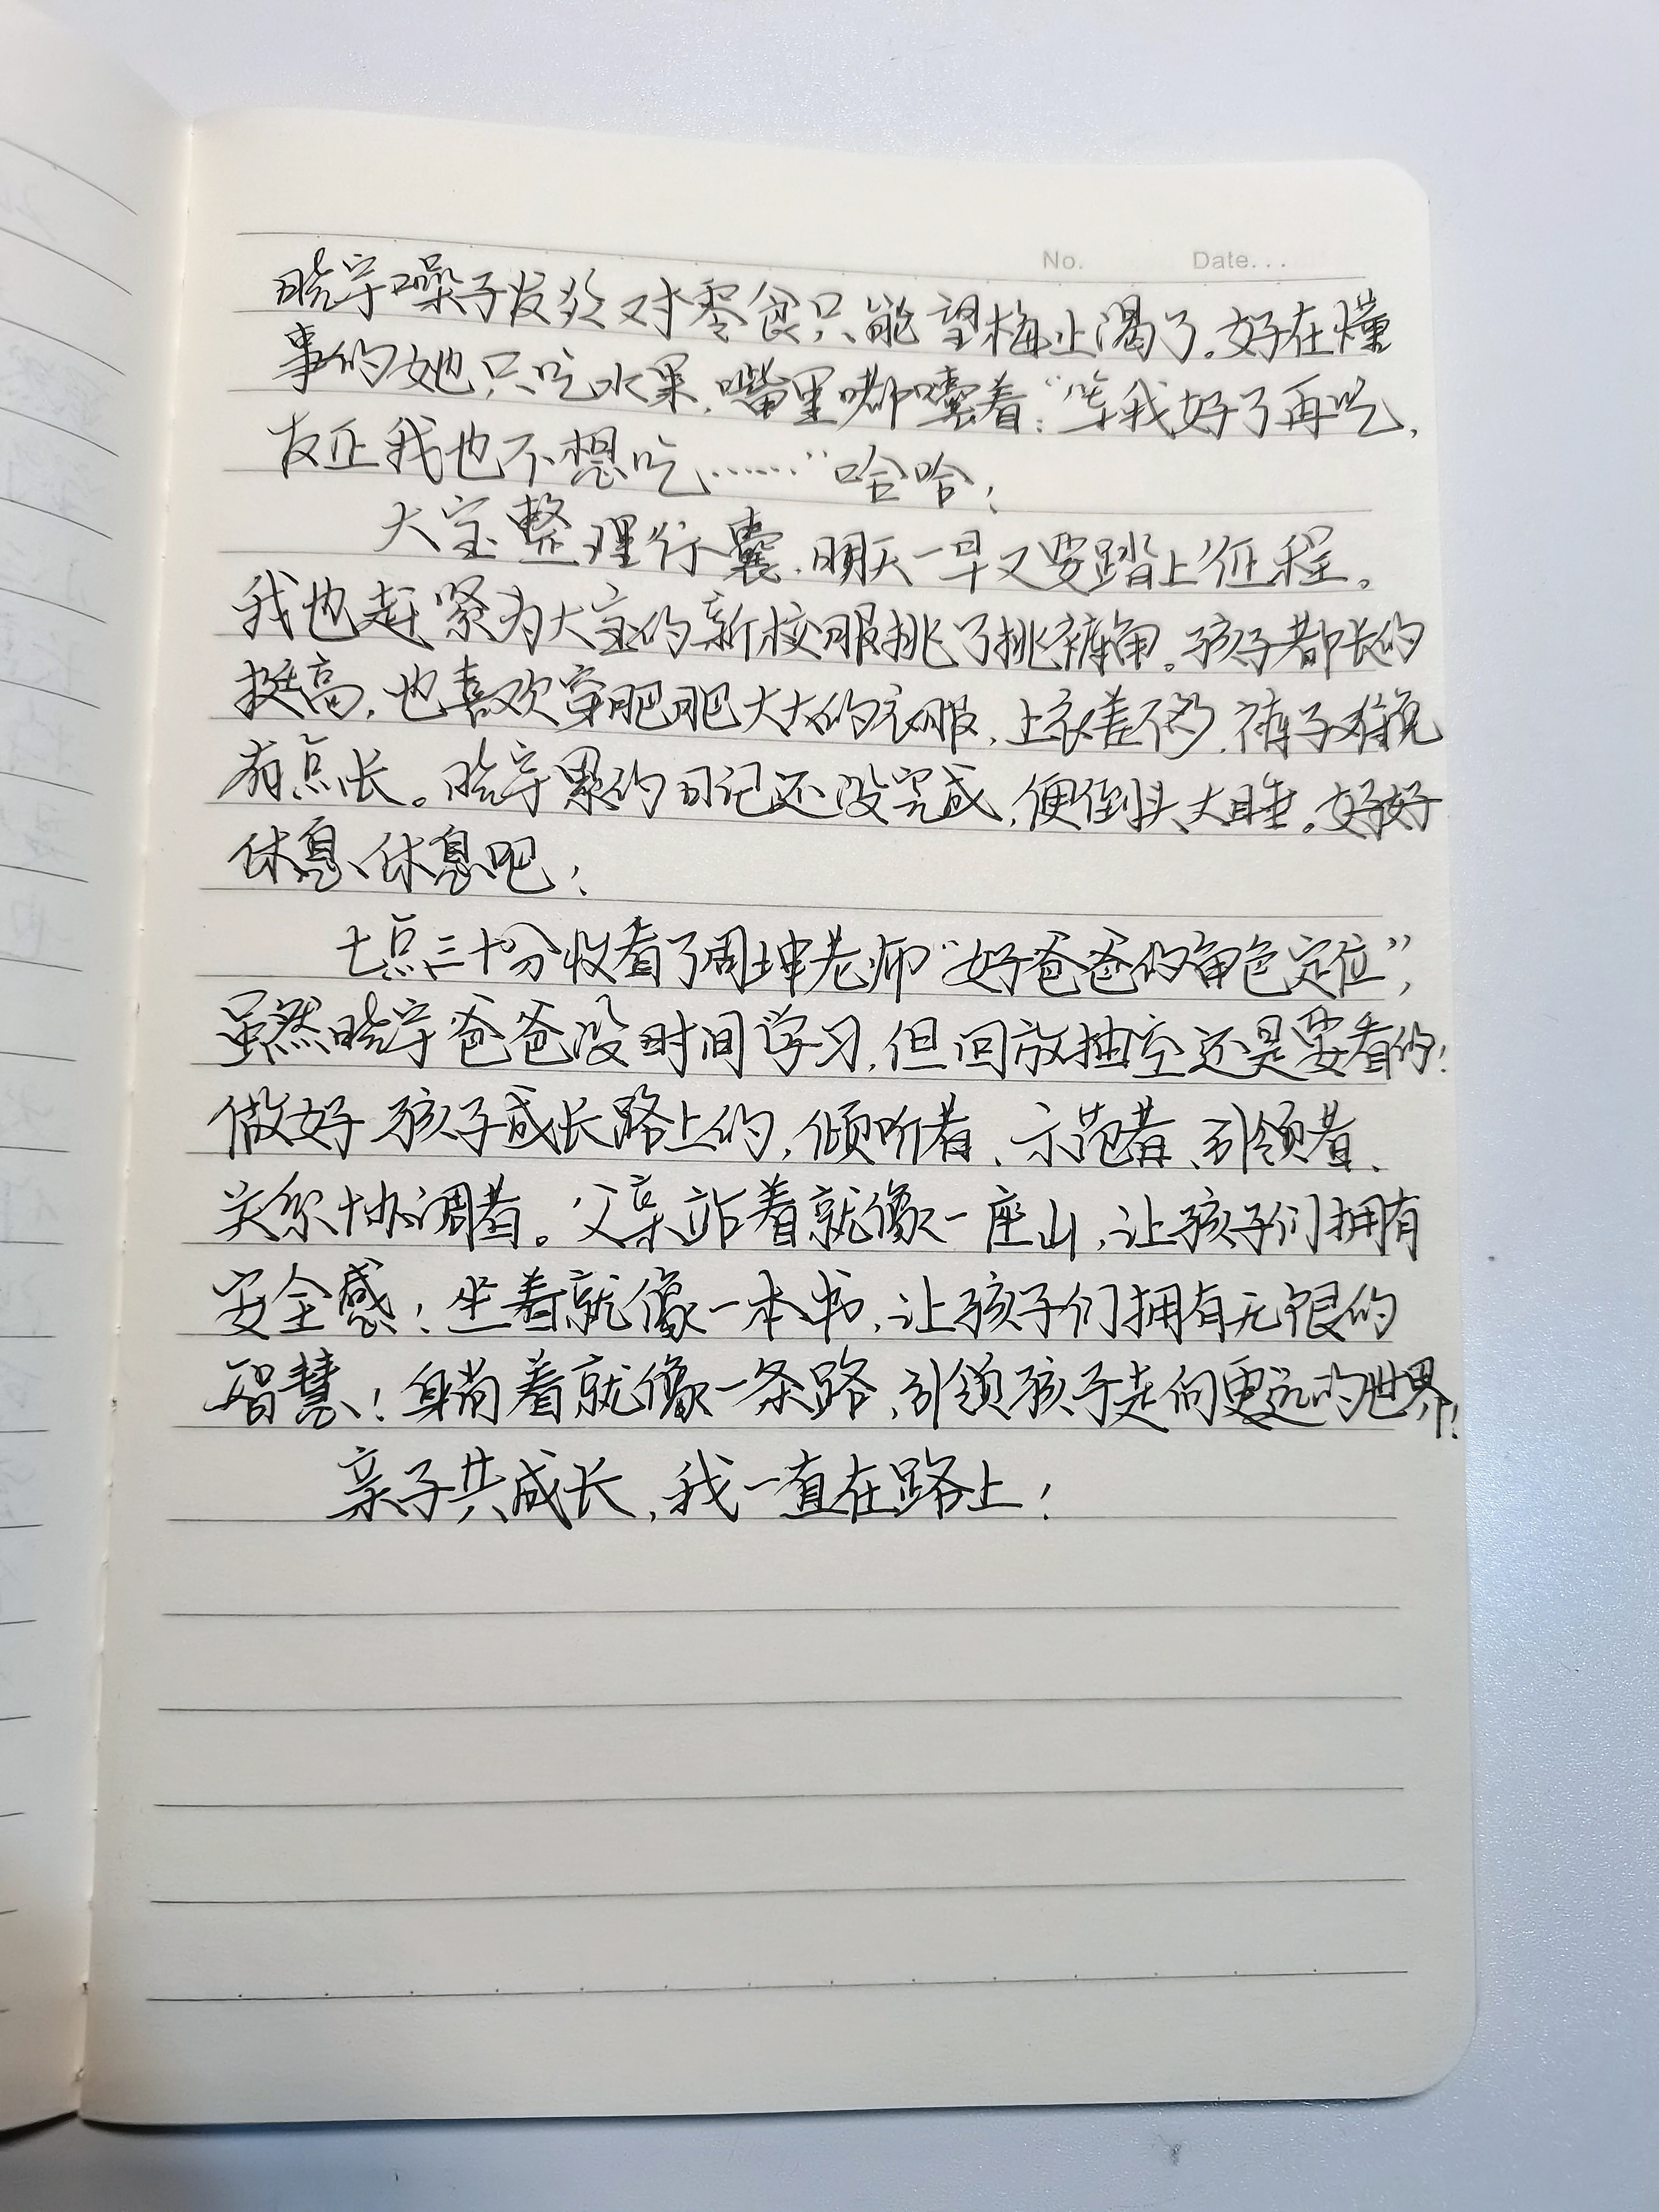 No. Date...
晓宇嗓子发炎对零食只能望梅止渴了。好在懂
事的她只吃水果,嘴里嘟囔着:“等我好了再吃,
友正我也不想吃……”哈哈!
大宝整理行囊,明天一早又要踏上征程。
我也赶紧为大宝的新校服挑了挑裤角。孩子都长的
挺高,也喜欢穿肥肥大大的衣服,上衣差不多,裤子难免
有点长。晓宇累的日记还没完成,便倒头大睡。好好
休息休息吧!
七点三十分收看了周坤老师“好爸爸的角色定位”,
虽然晓宇爸爸没时间学习,但回放抽空还是要看的!
做好孩子成长路上的,倾听者、示范者、引领者、
关系协调者。父亲站着就像一座山,让孩子们拥有
安全感!坐着就像一本书,让孩子们拥有无限的
智慧!躺着就像一条路,引领孩子走向更远的世界!
亲子共成长,我一直在路上!